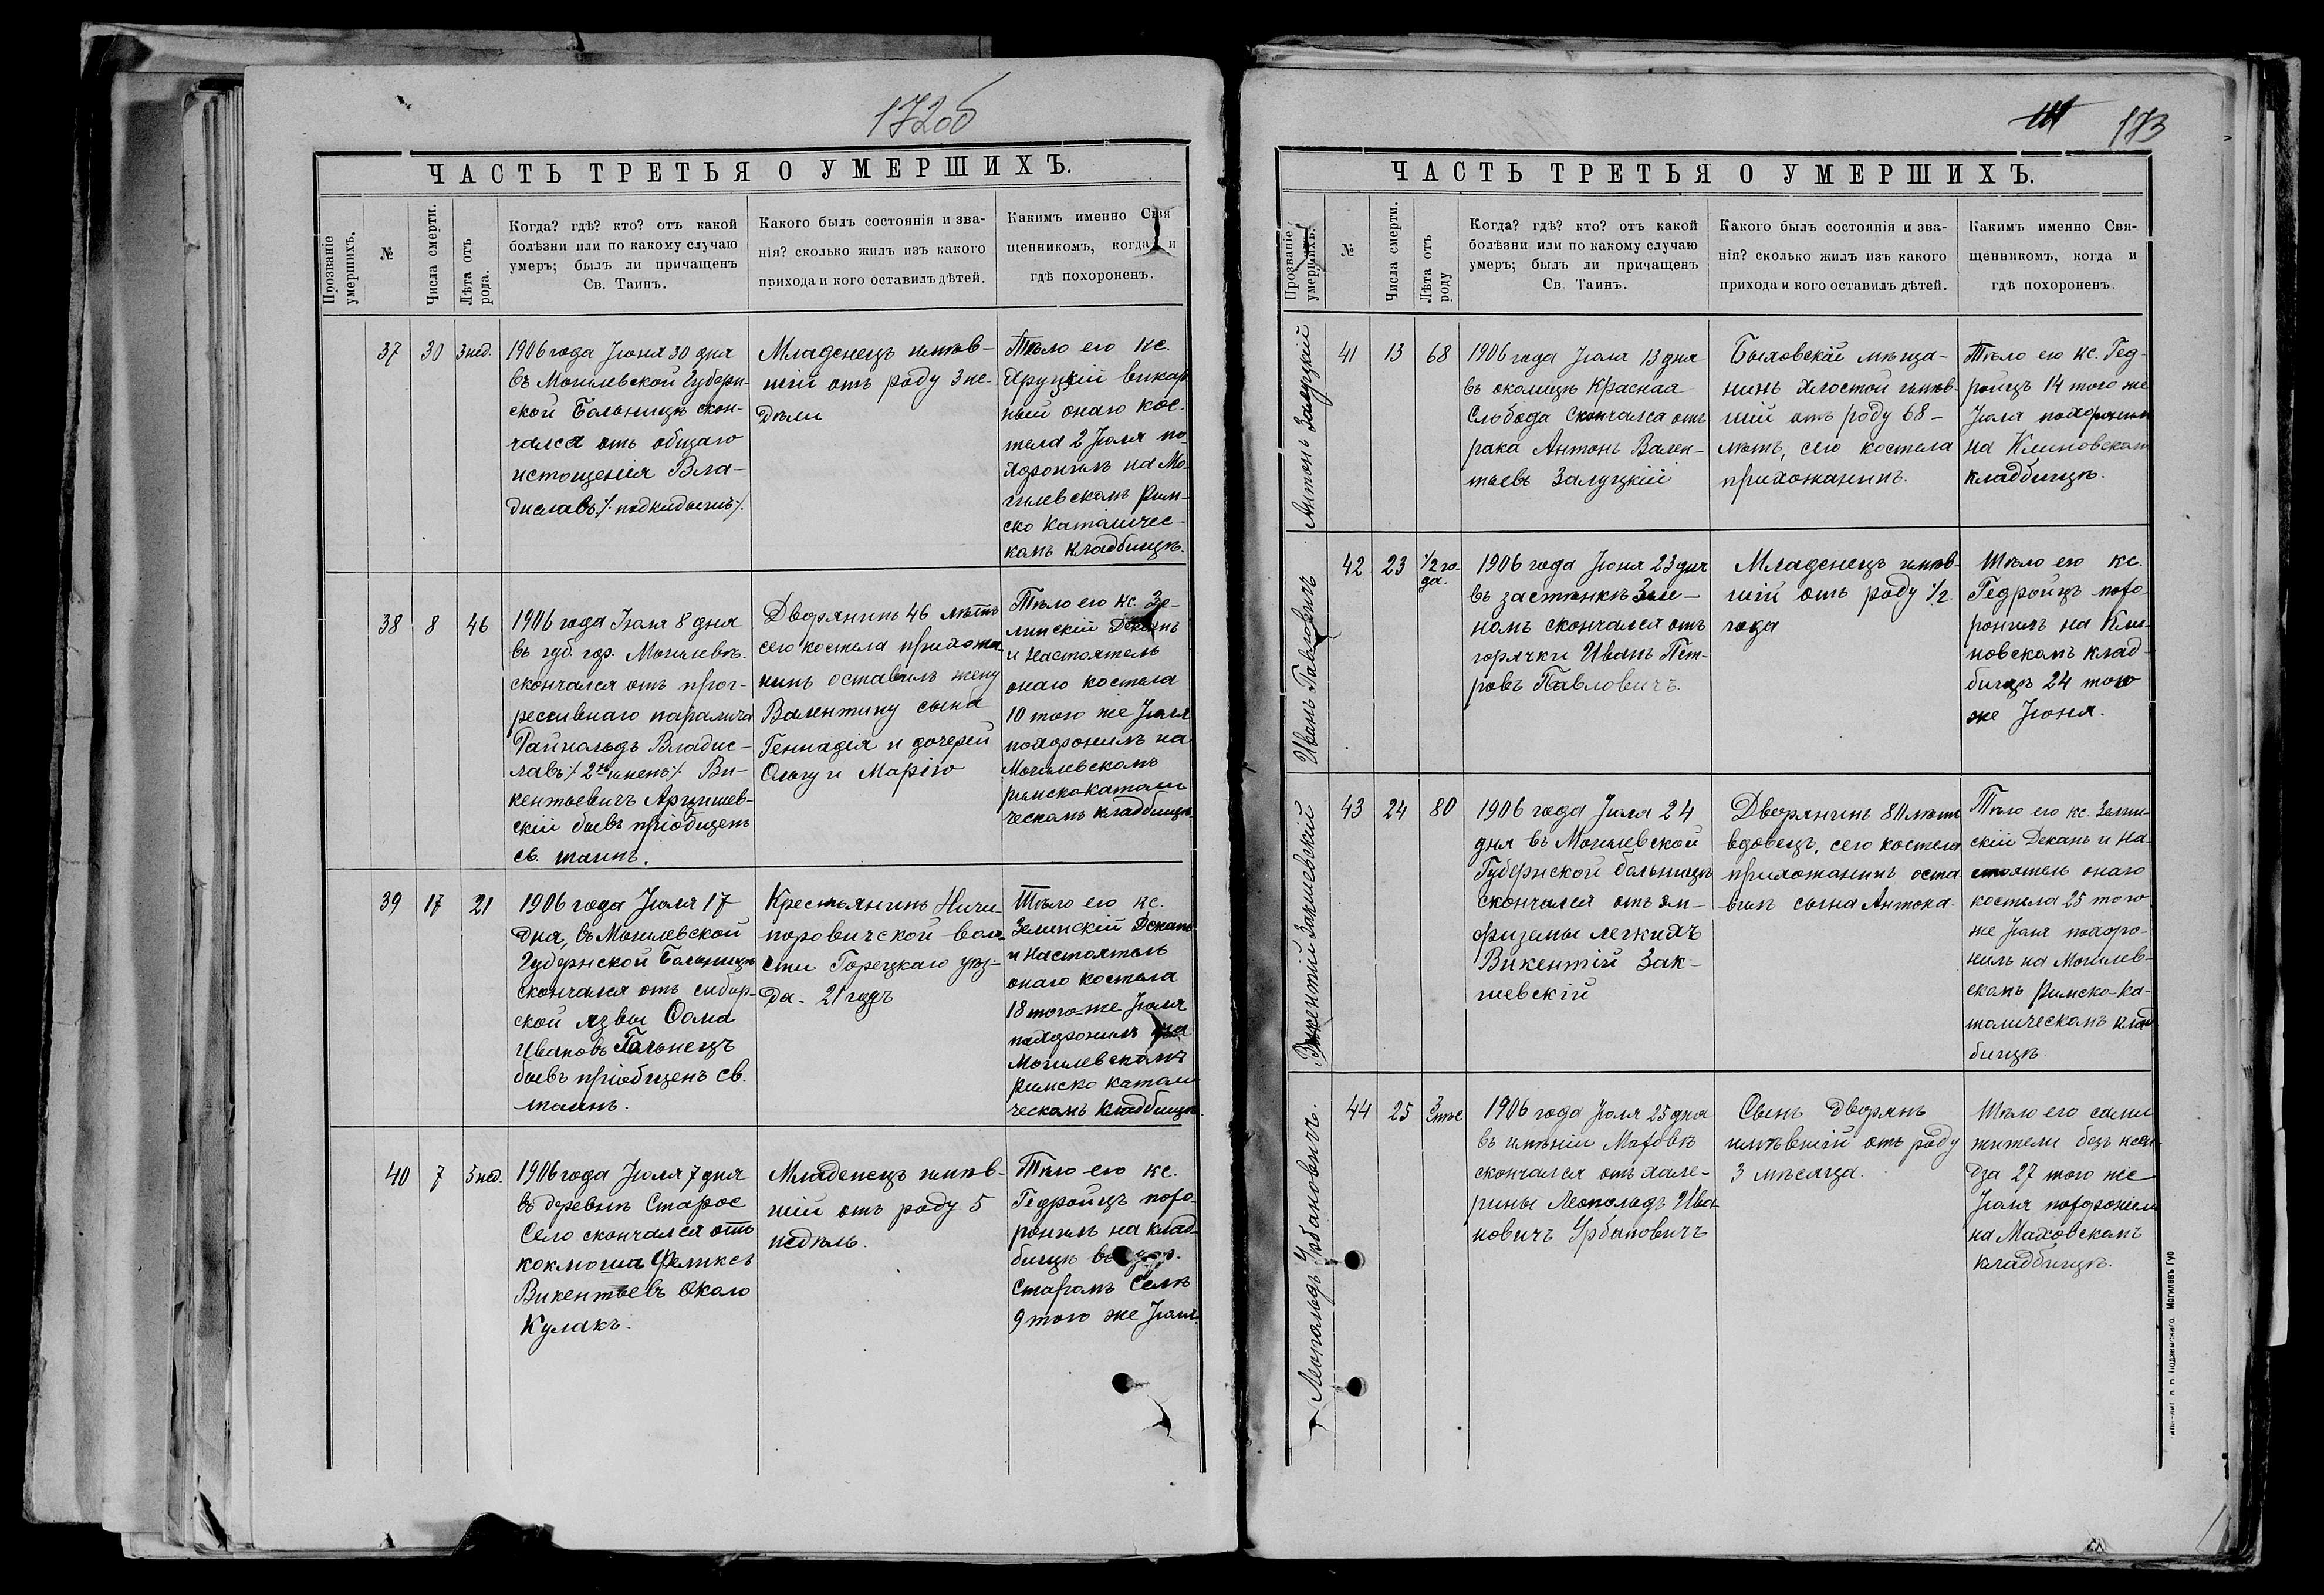 172об
ЧАСТЬ ТРЕТЬЯ О УМЕРШИХЪ.
Прозваніе умершихъ.
№
Числа смерти.
Лѣта отъ рода.
Когда? гдѣ? кто? отъ какой
болѣзни или по какому случаю
умеръ; былъ ли причащенъ
Св. Таинъ.
Какого былъ состоянія и зва-
нія? сколько жилъ изъ какого
прихода и кого оставилъ дѣтей.
Каким именно Свя
щенникомъ, когда и
гдѣ похороненъ.
37
30
3 нед.
1906 года Іюня 30 дня
въ Могилевской Губерн-
ской Больницѣ скон-
чался отъ общаго
истощенія Вла-
диславъ ./. подкидышъ ./.
Младенецъ имѣв-
шій отъ роду 3 не-
дѣли
Тѣло его кс.
викар
ный онаго кос-
тела 2 Іюля по-
хоронилъ на Мо-
гилевскомъ Рим-
ско Католичес-
комъ кладбищѣ.
38
8
46
1906 года Іюля 8 дня
въ губ. гор. Могилевѣ.
скончался отъ прог-
рессивнаго паралича
Райнольдъ Владис-
лавъ ./. 2хъ именъ ./. Ви-
кентьевичъ Арцишев-
скій бывъ пріобщенъ
св. таинъ.
Дворянинъ 46 лѣтъ
сего костела прихожа-
нинъ оставилъ жену
Валентину сына
Геннадія и дочерей
Ольгу и Марію
Тѣло его кс. Зе-
линскій Деканъ
и Настоятель
онаго костела
10 того же Іюля
похоронилъ на
Могилевскомъ
римско-катали
ческомъ кладбищѣ.
39
17
21
1906 года Іюля 17
дня, въ Могилевской
Губернской Больницѣ
скончался отъ сибир-
ской язвы Ѳома
Ивановъ Гальнецъ
бывъ пріобщенъ св.
таинъ.
Крестьянинъ Ничи-
поровичской воло-
сти Горецкаго уѣз-
да - 21 годъ
Тѣло его кс.
Зелинскій Деканъ
и Настоятель
онаго костела
18 того-же Іюля
похоронилъ на
Могилевскомъ
римско катали
ческомъ кладбищѣ.
40
7
5 нед.
1906 года Іюля 7 дня
въ деревнѣ Старое
Село скончался отъ
коклюша Феликсъ
Викентьевъ Около
Кулакъ.
Младенецъ имѣв-
шій отъ роду 5
недѣль.
Тѣло его кс.
Гедройцъ похо-
ронилъ на клад-
бищѣ въ дер.
Старомъ Селѣ
9 того же Іюля.
173
ЧАСТЬ ТРЕТЬЯ О УМЕРШИХЪ.
Прозваніе умершихъ.
№
Числа смерти.
Лѣта отъ роду
Когда? гдѣ? кто? отъ какой
болѣзни или по какому случаю
умеръ; былъ ли причащенъ
Св. Таинъ.
Какого былъ состоянія и зва-
нія? сколько жилъ изъ какого
прихода и кого оставилъ дѣтей.
Какимъ именно Свя-
щенникомъ, когда и
гдѣ похороненъ.
Антонъ Залуцкій
41
13
68
1906 года Іюля 13 дня
въ околицѣ Красная
Слобода скончался отъ
рака Антонъ Вален-
тьевъ Залуцкій
Быховскій мѣща-
нинъ холостой имѣв-
шій отъ роду 68 -
лѣтъ, сего костела
прихожанинъ.
Тѣло его кс. Гед-
ройцъ 14 того же
Іюля похоронилъ
на Климовскомъ
кладбищѣ.
Иванъ Павловичъ
42
23
1/2 го-
да.
1906 года Іюня 23 дня
въ застѣнкѣ
скончался отъ
горячки Иванъ Пет-
ровъ Павловичъ.
Младенецъ имѣв-
шій отъ роду 1/2
года
Тѣло его кс.
Гедройцъ похо-
ронилъ на Кли-
новскомъ клад-
бищѣ 24 того
же Іюня.
Викентій Закшевскій
43
24
80
1906 года Іюля 24
дня въ Могилевской
Губернской больницѣ
скончался отъ эм-
физемы легкихъ
Викентій Зак-
шевскій
Дворянинъ 80 лѣтъ
вдовецъ, сего костела
прихожанинъ оста-
вилъ сына Антона.
Тѣло его кс. Зелин-
скій Деканъ и На-
стоятель онаго
костела 25 того
же Іюля похоро-
нилъ на Могилев-
скомъ Римско-ка-
толическомъ клад
бищѣ.
Леопольдъ Урбановичъ.
44
25
3 мѣс
1906 года Іюля 25 дня
въ имѣніи Маховѣ
скончался отъ холе-
рины Леопольдъ Ива-
новичъ Урбановичъ
Сынъ Дворянъ
имѣвшій отъ роду
3 мѣсяца.
Тѣло его сами
жители безъ ксен-
дза 27 того же
Іюля похоронили
на Маховскомъ
кладбищѣ.